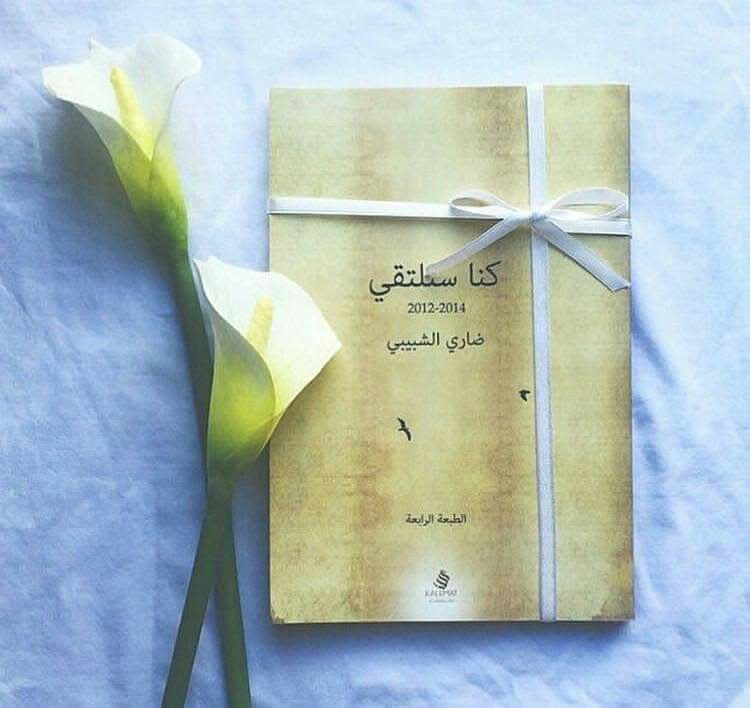 كنا سنلتقي
2012-2014
ضاري الشبيبي
الطبعة الرابعة
KALEMAT